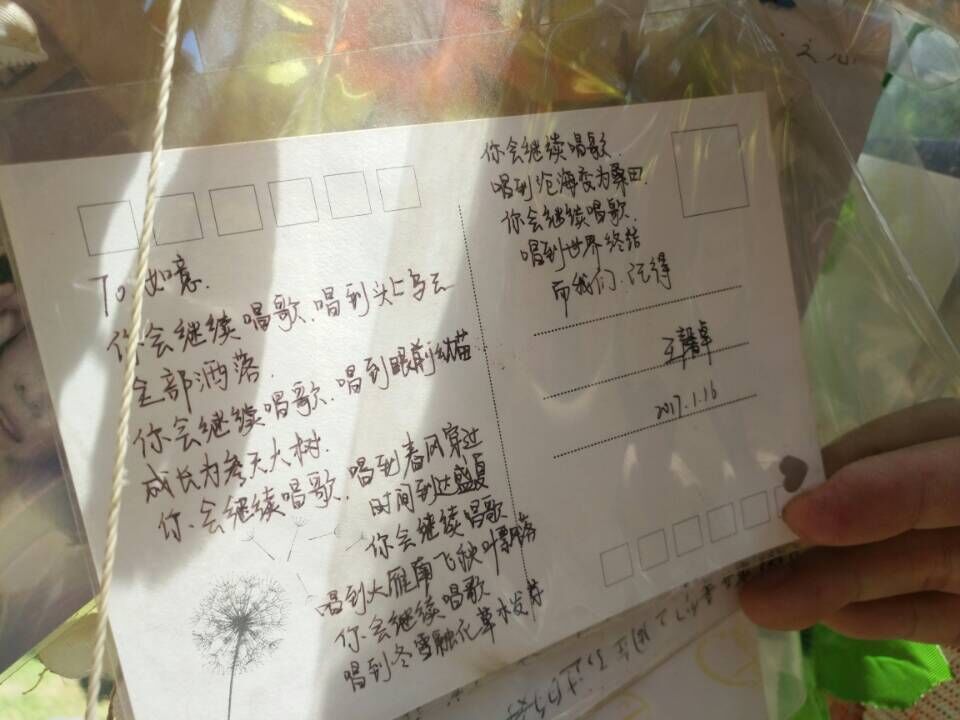 To 如意.
你会继续唱歌.唱到头上乌云
全部洒落.
你会继续唱歌.唱到眼前幼苗
成长为参天大树.
你会继续唱歌.唱到春风穿过
时间到达盛夏
你会继续唱歌
唱到大雁南飞秋叶飘落
你会继续唱歌
唱到冬雪融化草木发芽
你会继续唱歌.
唱到沧海变为桑田.
你会继续唱歌.
唱到世界终结
而我们.记得
王馨卓
2017.1.16
之